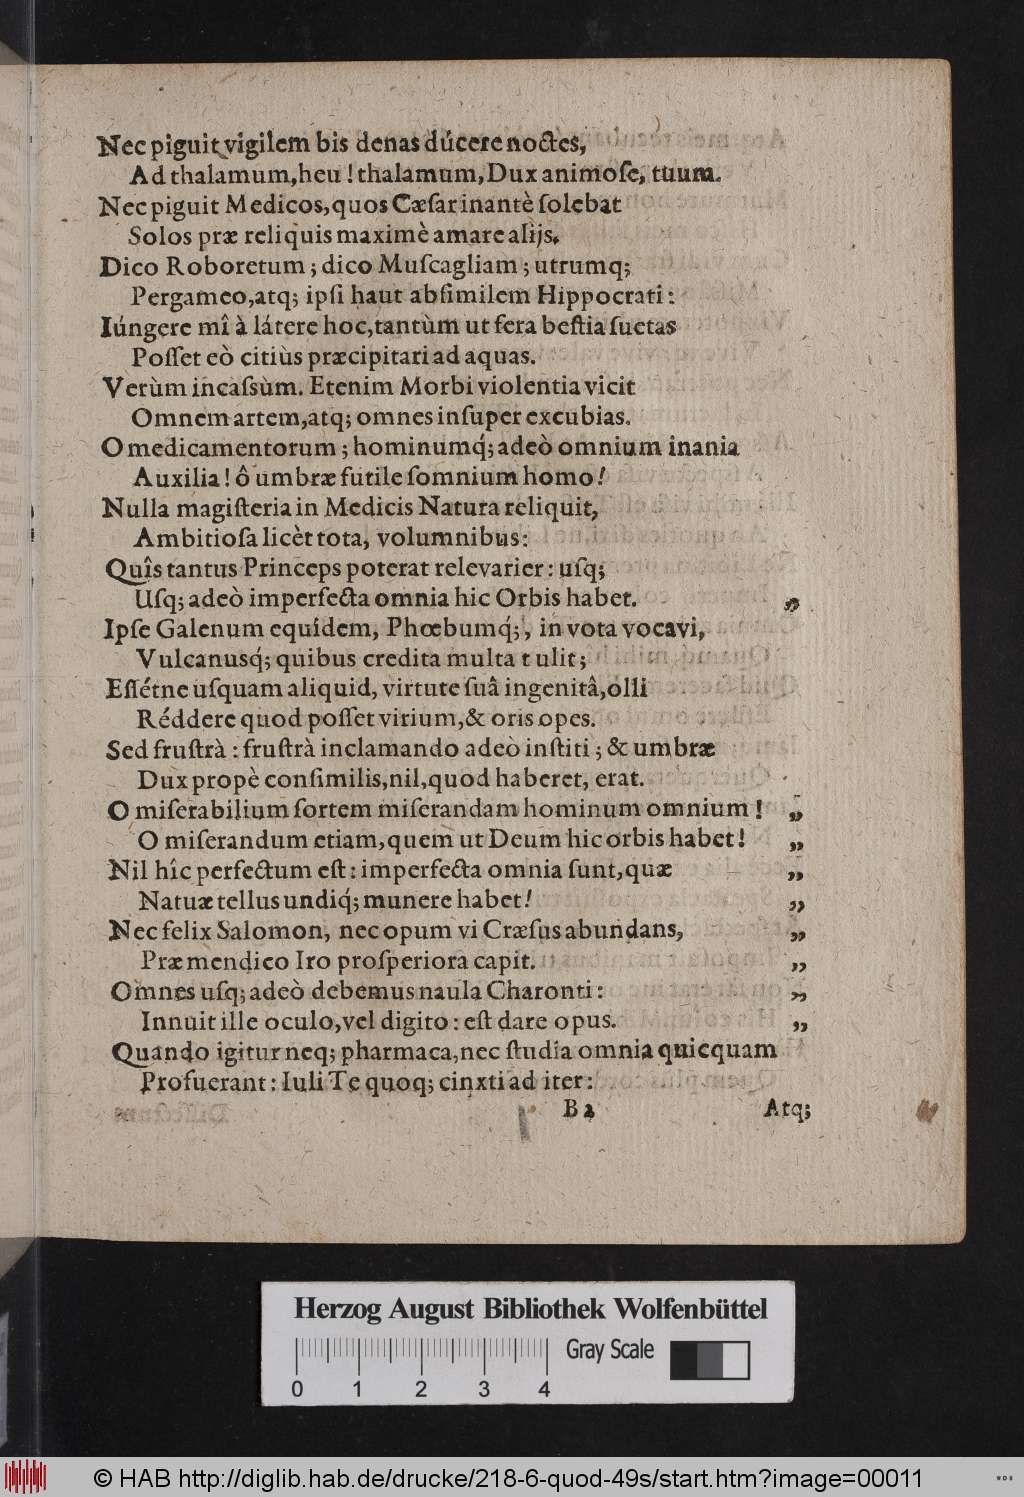 Nec piguit vigilem bis denas dúcere noctes,
Ad thalamum, heu! thalamum, Dux animoſe, tuum.
Nec piguit Medicos, quos Cæſar inantè ſolebat
Solos præ reliquis maximè amare alijs.
Dico Roboretum; dico Muſcagliam; utrumq;
Pergameo, atq; ipſi haut abſimilem Hippocrati:
Iúngere mî à látere hoc, tantùm ut fera beſtia ſuetas
Poſſet eò citiùs præcipitari ad aquas.
Verùm incaſsùm. Etenim Morbi violentia vicit
Omnem artem, atq; omnes inſuper excubias.
O medicamentorum; hominumq́; adeò omnium inania
Auxilia! ô umbræ futile ſomnium homo!
Nulla magiſteria in Medicis Natura reliquit,
Ambitioſa licèt tota, volumnibus:
Quîs tantus Princeps poterat relevarier: uſq;
Uſq; adeò imperfecta omnia hic Orbis habet. „
Ipſe Galenum equídem, Phœbumq́;, in vota vocavi,
Vulcanusq́; quibus credita multa tulit;
Eſſétne uſquam aliquid, virtute ſuâ ingenitâ, olli
Réddere quod poſſet virium, & oris opes.
Sed fruſtrà: fruſtrà inclamando adeò inſtiti; & umbræ
Dux propè conſimilis, nil, quod haberet, erat.
O miſerabilium ſortem miſerandam hominum omnium! „
O miſerandum etiam, quem ut Deum hic orbis habet! „
Nil hîc perfectum eſt: imperfecta omnia ſunt, quæ „
Natuæ tellus undiq́; munere habet! „
Nec felix Salomon, nec opum vi Cræſus abundans, „
Præ mendico Iro proſperiora capit. „
Omnes uſq; adeò debemus naula Charonti: „
Innuit ille oculo, vel digito: eſt dare opus. „
Quando igitur neq; pharmaca, nec ſtudia omnia quicquam
Profuerant: Iuli Te quoq; cinxti ad iter:
B 2 Atq;
Herzog August Bibliothek Wolfenbüttel
Gray Scale
0 1 2 3 4
© HAB http://diglib.hab.de/drucke/218-6-quod-49s/start.htm?image=00011